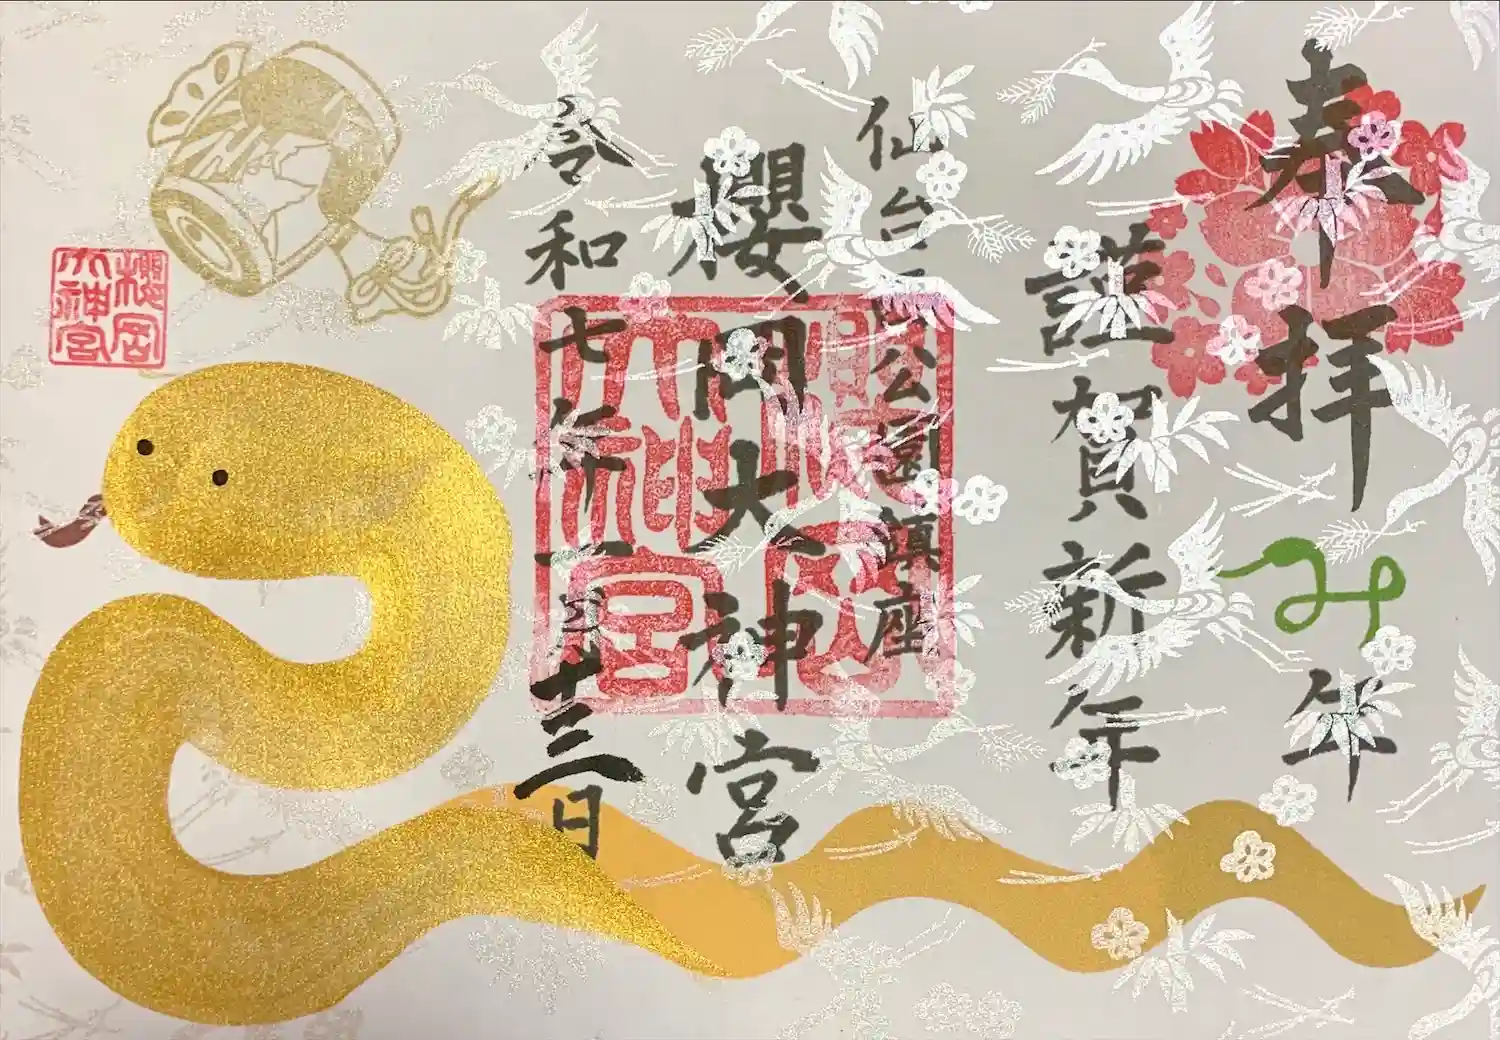 奉拝
み年
謹賀新年
仙台西公園鎮座
櫻岡大神宮
櫻岡
大神宮
令和七年一月十三日
櫻岡
大神宮